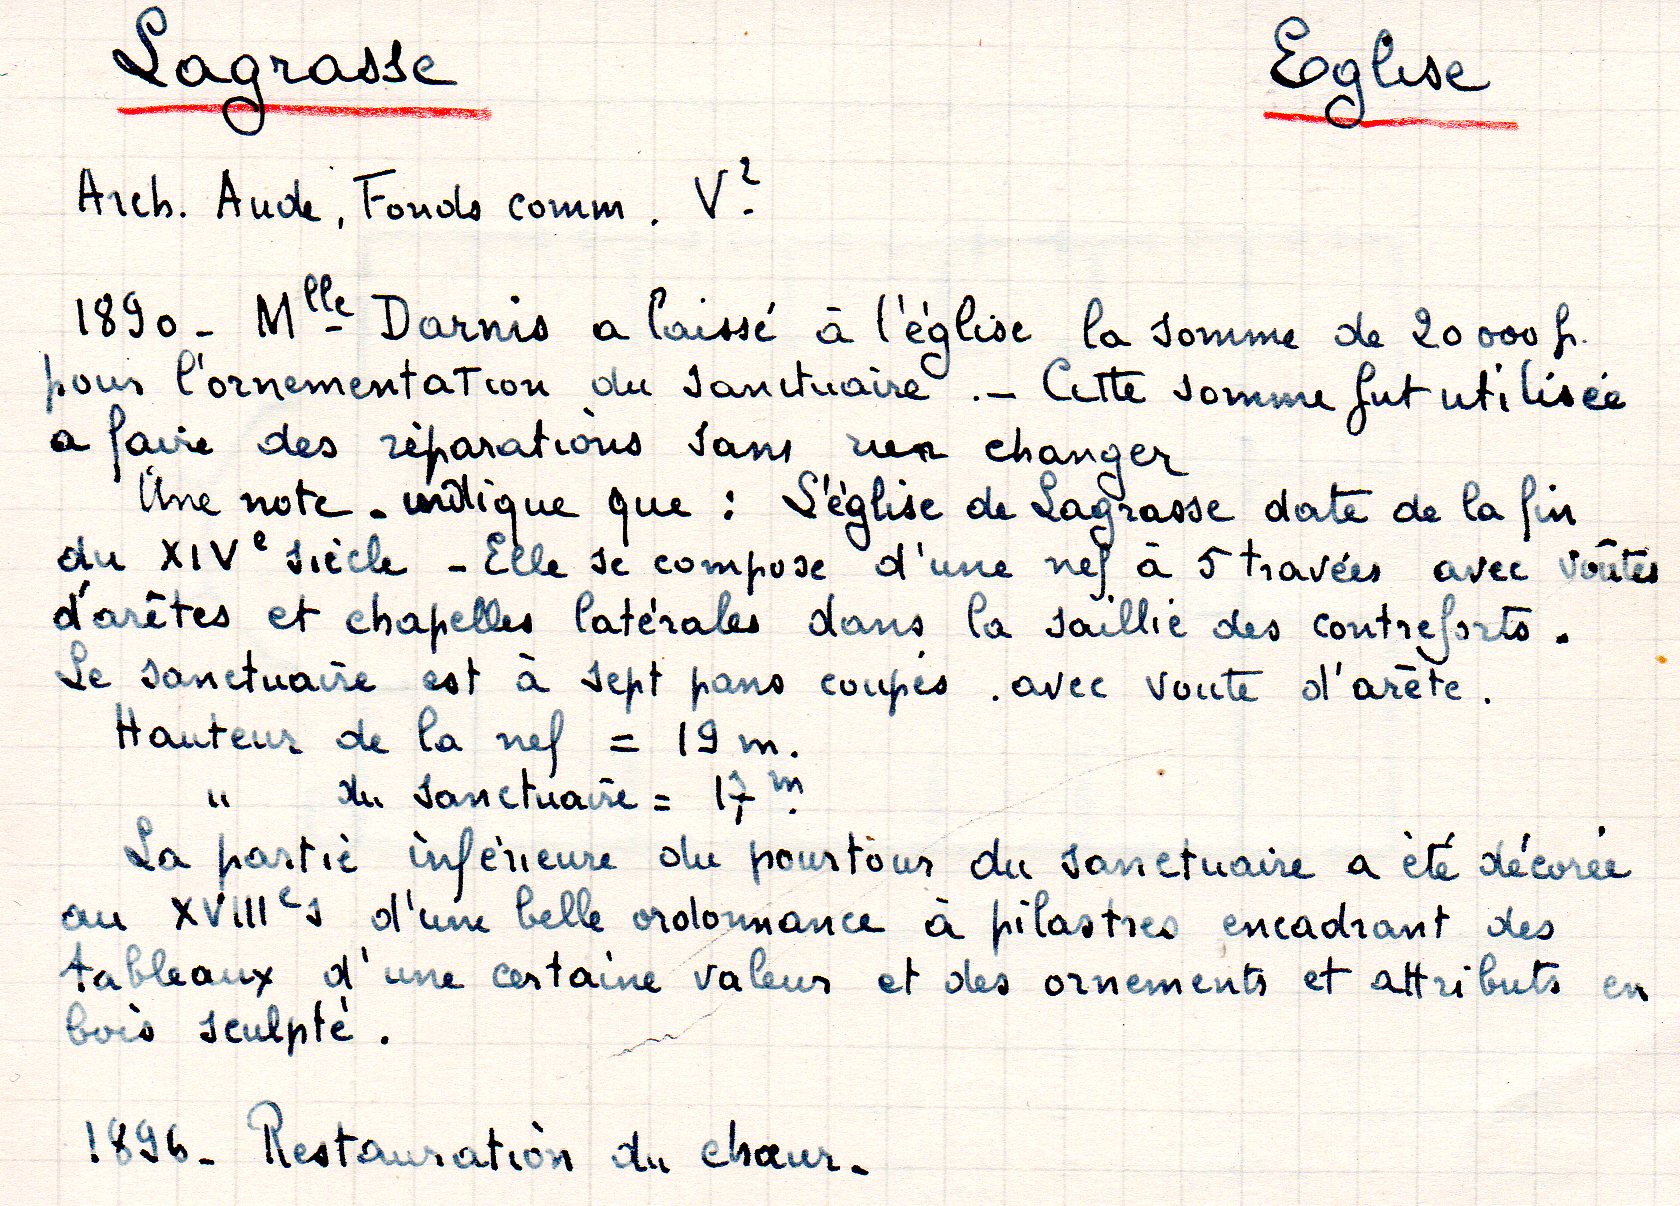 Lagrasse Eglise
Arch. Aude, Fonds comm. V².
1890 - Mlle Darnis a laissé à l'église la somme de 20 000 f.
pour l'ornementation du sanctuaire. - Cette somme fut utilisée
a faire des réparations sans rien changer
Une note indique que : L'église de Lagrasse date de la fin
du XIVe siècle - Elle se compose d'une nef à 5 travées avec voûtes
d'arêtes et chapelles latérales dans la saillie des contreforts.
Le sanctuaire est à sept pans coupés. avec voute d'arête.
Hauteur de la nef = 19 m.
" du sanctuaire = 17 m.
La partie inférieure du pourtour du sanctuaire a été décorée
au XVIIIe s d'une belle ordonnance à pilastres encadrant des
tableaux d'une certaine valeur et des ornements et attributs en
bois sculpté.
1896 - Restauration du chœur.